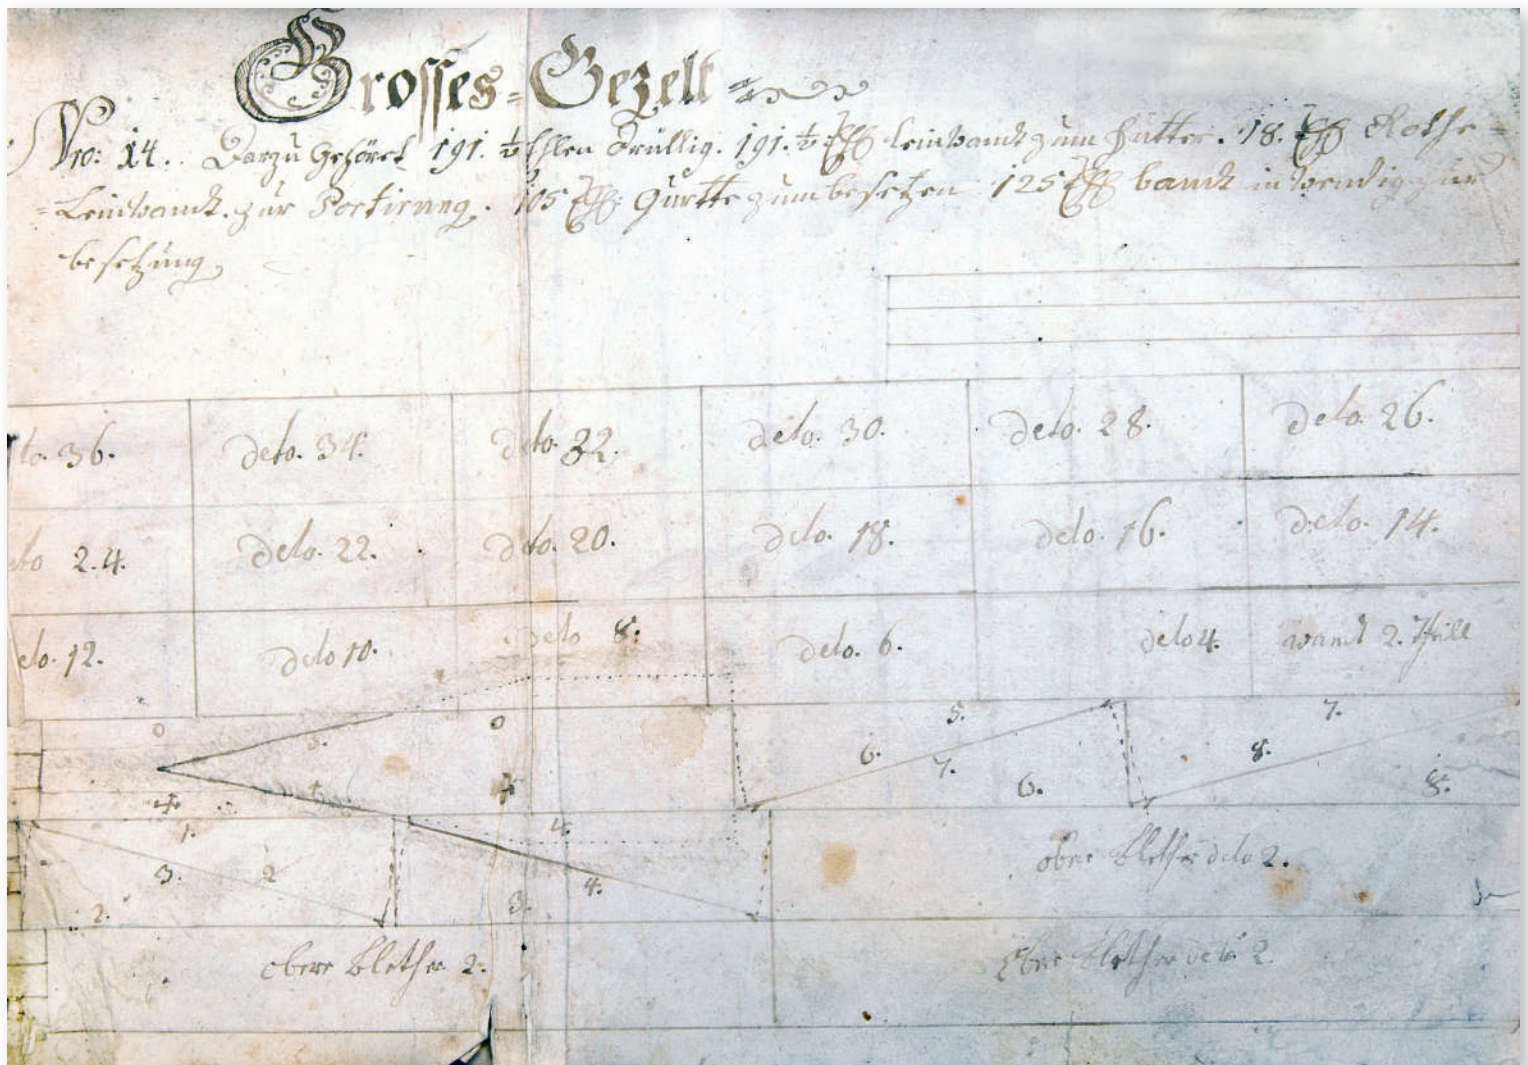 Grosses-Gezelt
Nro: 14. Darzu Gehöret 191. ½ Ehlen Trüllig. 191. ½ Ehl Leinwandt zum Fütter. 18. Ehl Rothe-
-Leinwandt. zur Portirung. 105 Ehl: Gurtte zum besetzen 125 Ehl bandt inwendig zur
besetzung
to. 36. deto. 34. deto. 32. deto. 30. deto. 28. deto. 26.
to 24. deto. 22. deto. 20. deto. 18. deto. 16. deto. 14.
eto. 12. deto 10. deto 8. deto. 6. deto 4. wandt 2. Theill
0 0 5. 7.
5. 6. 7. 8.
6. 8.
1. 4.
3. 2 4. obere Blether deto 2.
2. 3.
obere Blether 2. Obere Blether deto 2.